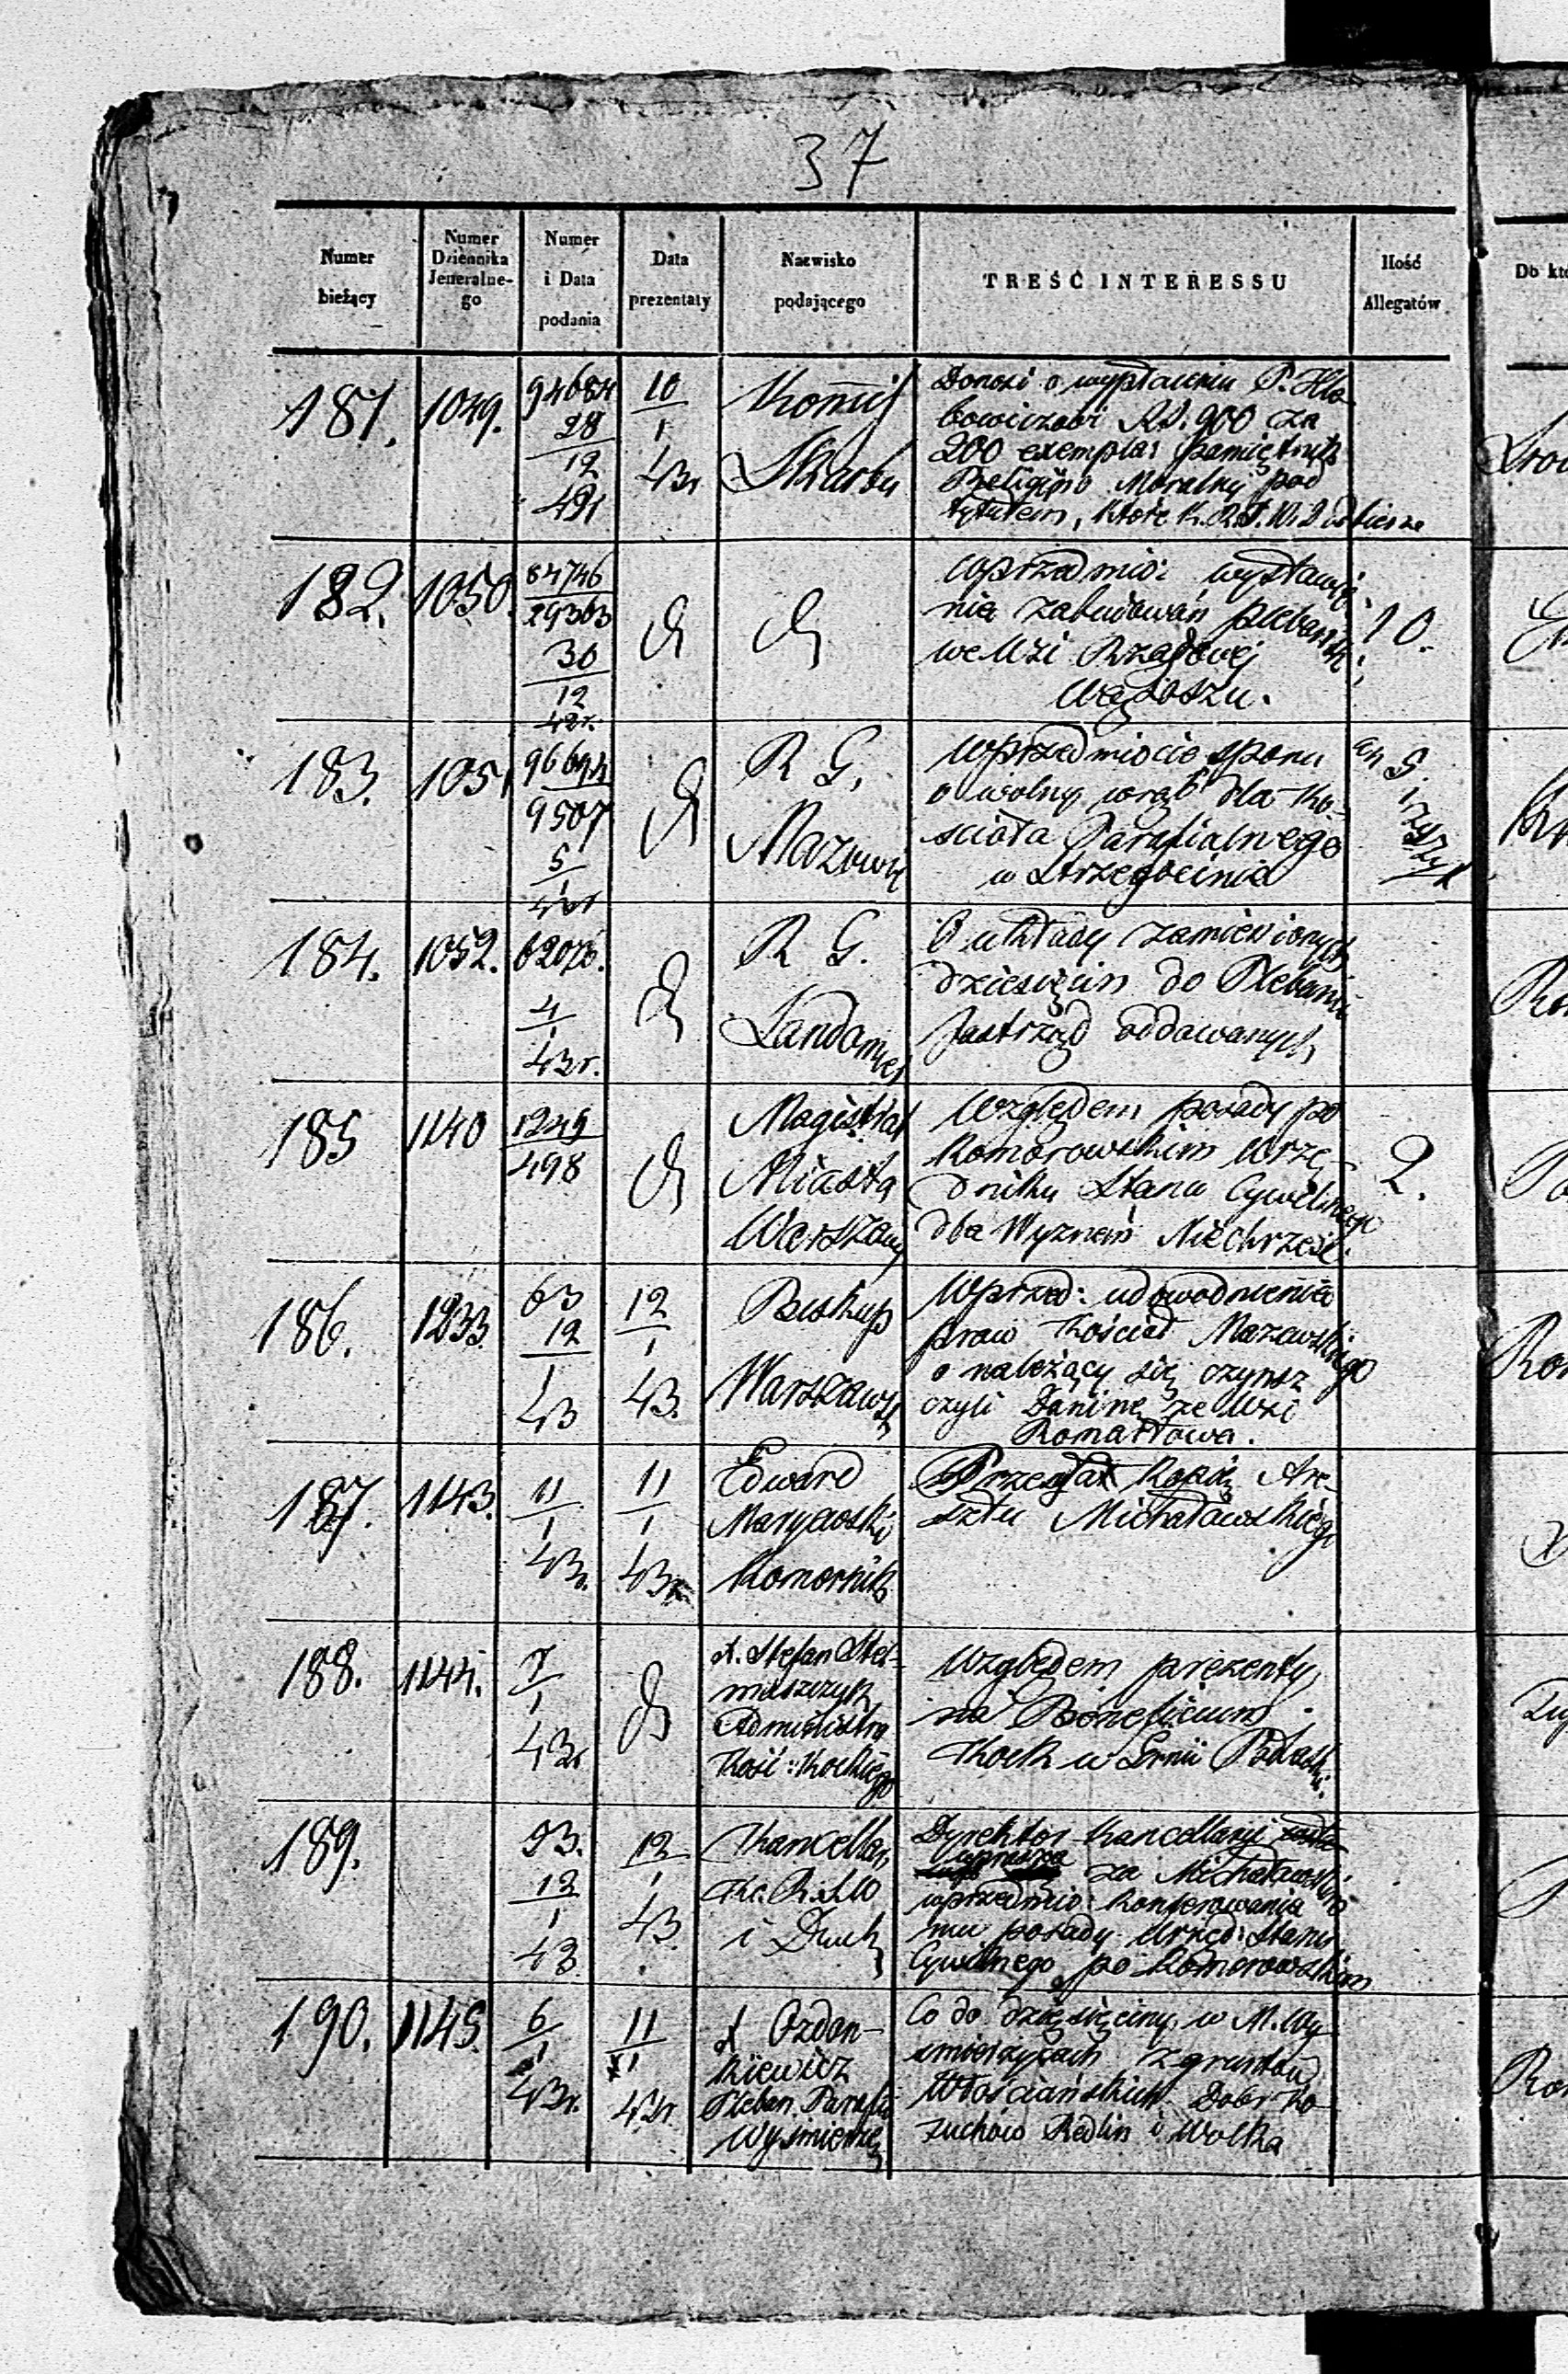 37
Numer bieżący
Numer Dziennika Jeneralne-go
Numer i Data podania
Data prezentaty
Nazwisko podającego
TREŚĆ INTERESSU
Ilość Allegatów
Do
181. 1049. 94684 28/12 42r 10/1 43r
Kommis
Skarbu
Donosi o wypłaceniu P. Hle-
bowiczowi RS. 900 za
200 exemplar pamiętnik
Religijno Moralny pod
tytułem, które K. R. S. W. D odbierze
182. 1050. 84746/29363 30/12 42r. d d
w przedmio: wystawie-
nia zabudowań plebańsk:
we Wsi Rządowej
Wąsoszu.
10.
183. 1051 9507 5/1 43r d
R G.
Mazowie
w przedmiocie sporu
o wolny wrąb dla Ko-
ścioła Parafialnego
w Strzegocinie
184. 1052. 4/1 43r. d
R G.
Sandomier
O układy zamienionych
dziesięcin do Plebanii
Jastrząb oddawanych
185 1140 1249/498 d
Magistrat
Miasta
Warszawy
Względem posady po
Komorowskim Urzę-
dniku Stanu Cywilnego
dla Wyznań Niechrześc.
2.
186. 1233. 63 12/1 43 12/1 43.
Biskup
Warszawsk
w przed: udowodnienia
praw Kościoł Mazewskiego
o należący się czynsz
czyli Daninę ze Wsi
Romartowa.
187. 1143. 11/1 43r. 11/1 43r
Edward
Komornik
Przesyła Kopię Are-
sztu Michałowskiego
188. 1144. 7/1 43r d
X. Stefan Stel-
maszczyk
Administra
Kość: Kockiego
Względem prezenty
na Beneficium
Kock w Gernii Podlaski:
189. 23. 12/1 43 12/1 43.
Kancellar
Ko. R. S. W
i Duch
Dyrektor Kancellaryi
uprasza za Michałowskim
w przedmio: konferowania
mu posady Urzęd: Stanu
Cywilnego po Komorowskim
190. 1145. 6/1 43r. 11/1 43r
X Ozdon-
kiewicz
Pleban. Parafii
Wyśmierzy
Co do dziesięciny w M. Wy-
śmierzycach z gruntów
Włościańskich Dobr Ko-
żuchów Redlin i Wolka